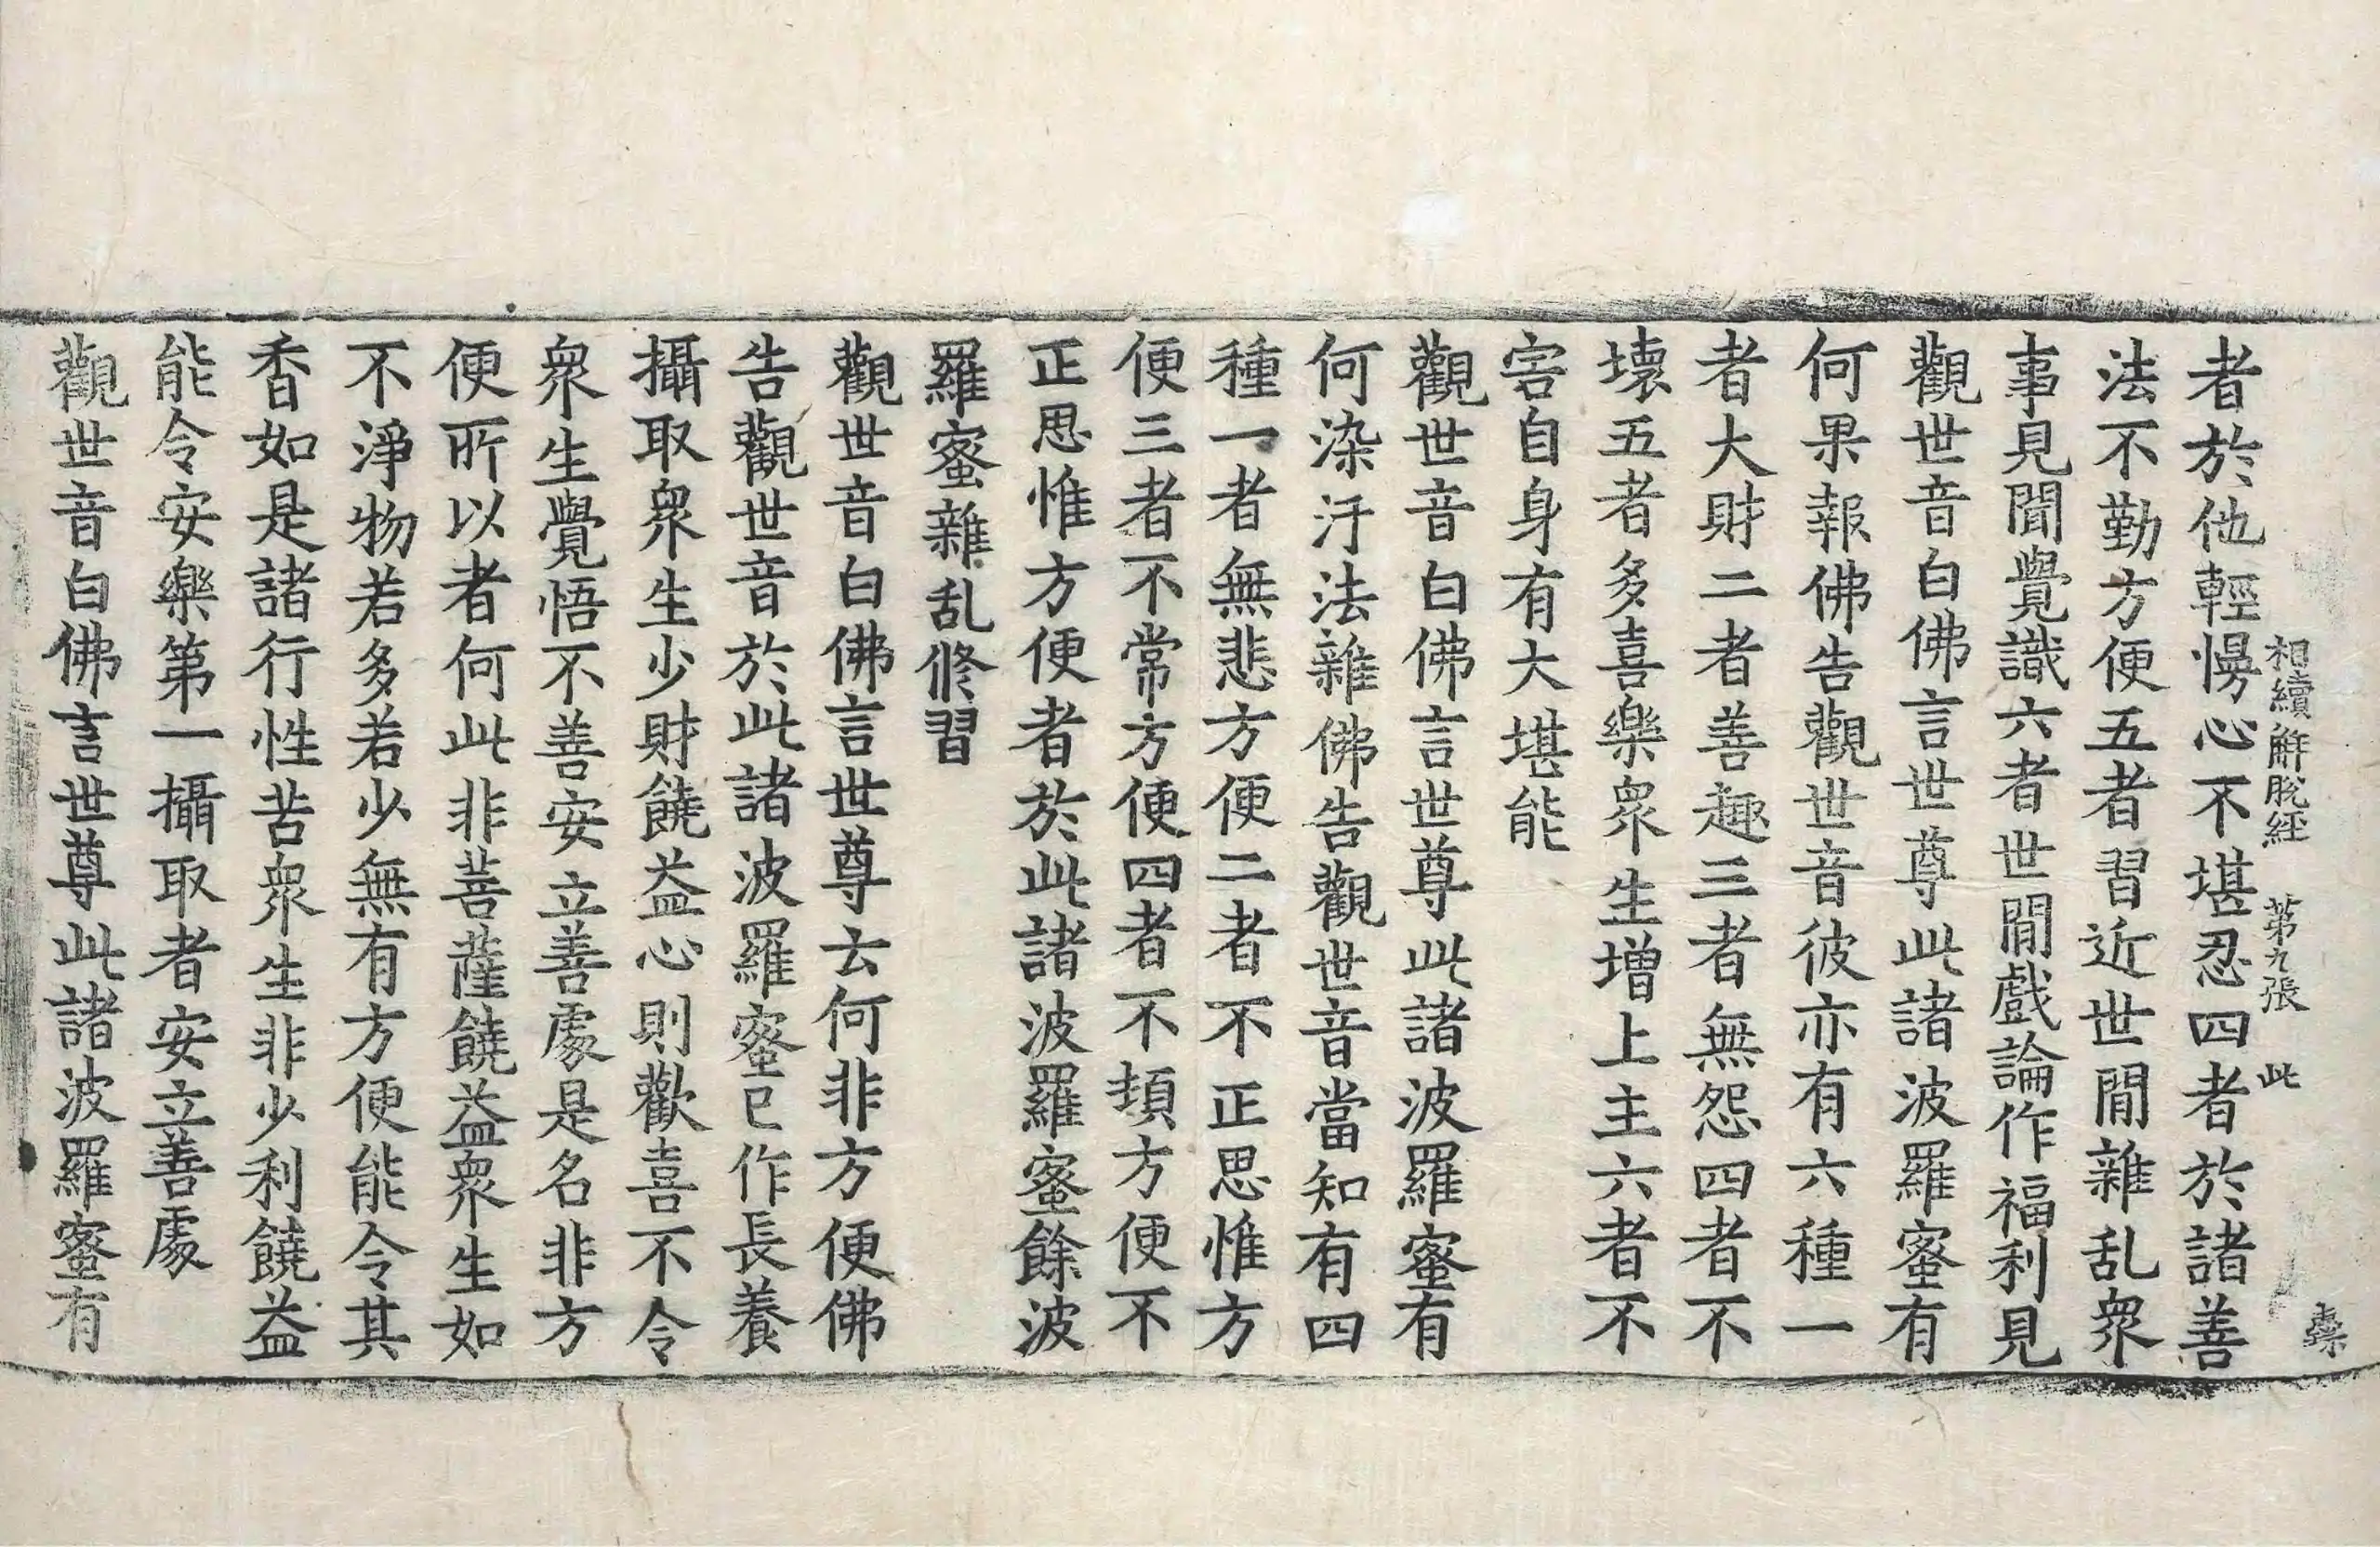 相續解脫經 第九張 此
者於他輕慢心不堪忍四者於諸善
法不勤方便五者習近世間雜乱衆
事見聞覺識六者世間戲論作福利見
觀世音白佛言世尊此諸波羅蜜有
何果報佛告觀世音彼亦有六種一
者大財二者善趣三者無怨四者不
壞五者多喜樂衆生增上主六者不
害自身有大堪能
觀世音白佛言世尊此諸波羅蜜有
何染汙法雜佛告觀世音當知有四
種一者無悲方便二者不正思惟方
便三者不常方便四者不頓方便不
正思惟方便者於此諸波羅蜜餘波
羅蜜雜乱修習
觀世音白佛言世尊云何非方便佛
告觀世音於此諸波羅蜜已作長養
攝取衆生少財饒益心則歡喜不令
衆生覺悟不善安立善處是名非方
便所以者何此非菩薩饒益衆生如
不淨物若多若少無有方便能令其
香如是諸行性苦衆生非少利饒益
能令安樂第一攝取者安立善處
觀世音白佛言世尊此諸波羅蜜有